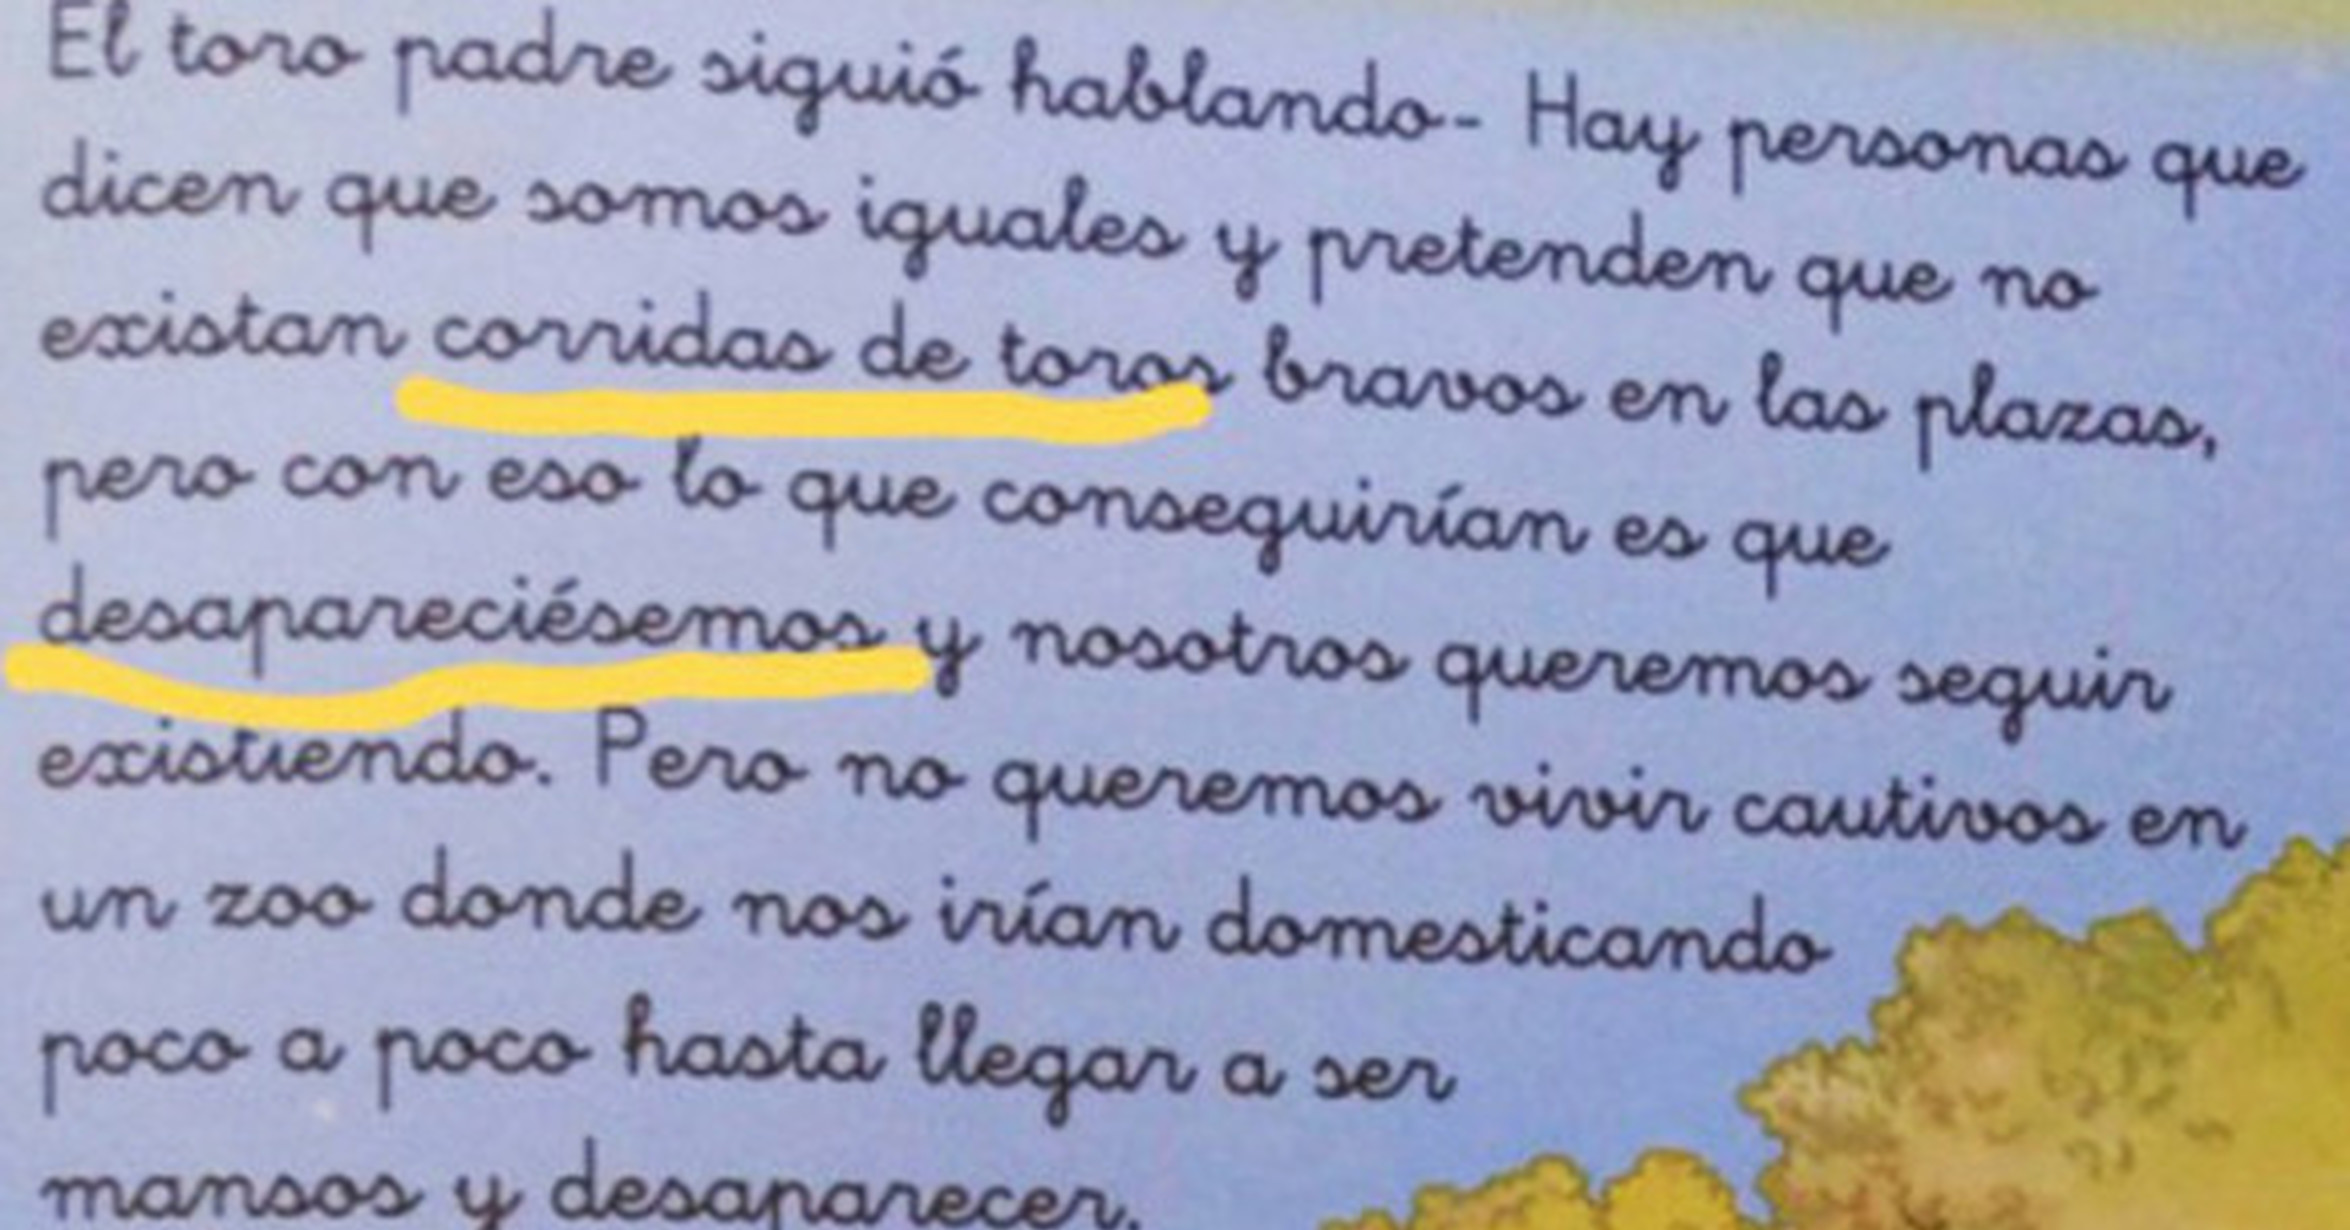 El toro padre siguió hablando- Hay personas que
dicen que somos iguales y pretenden que no
existan corridas de toros bravos en las plazas,
pero con eso lo que conseguirían es que
desapareciésemos y nosotros queremos seguir
existiendo. Pero no queremos vivir cautivos en
un zoo donde nos irían domesticando
poco a poco hasta llegar a ser
mansos y desaparecer.